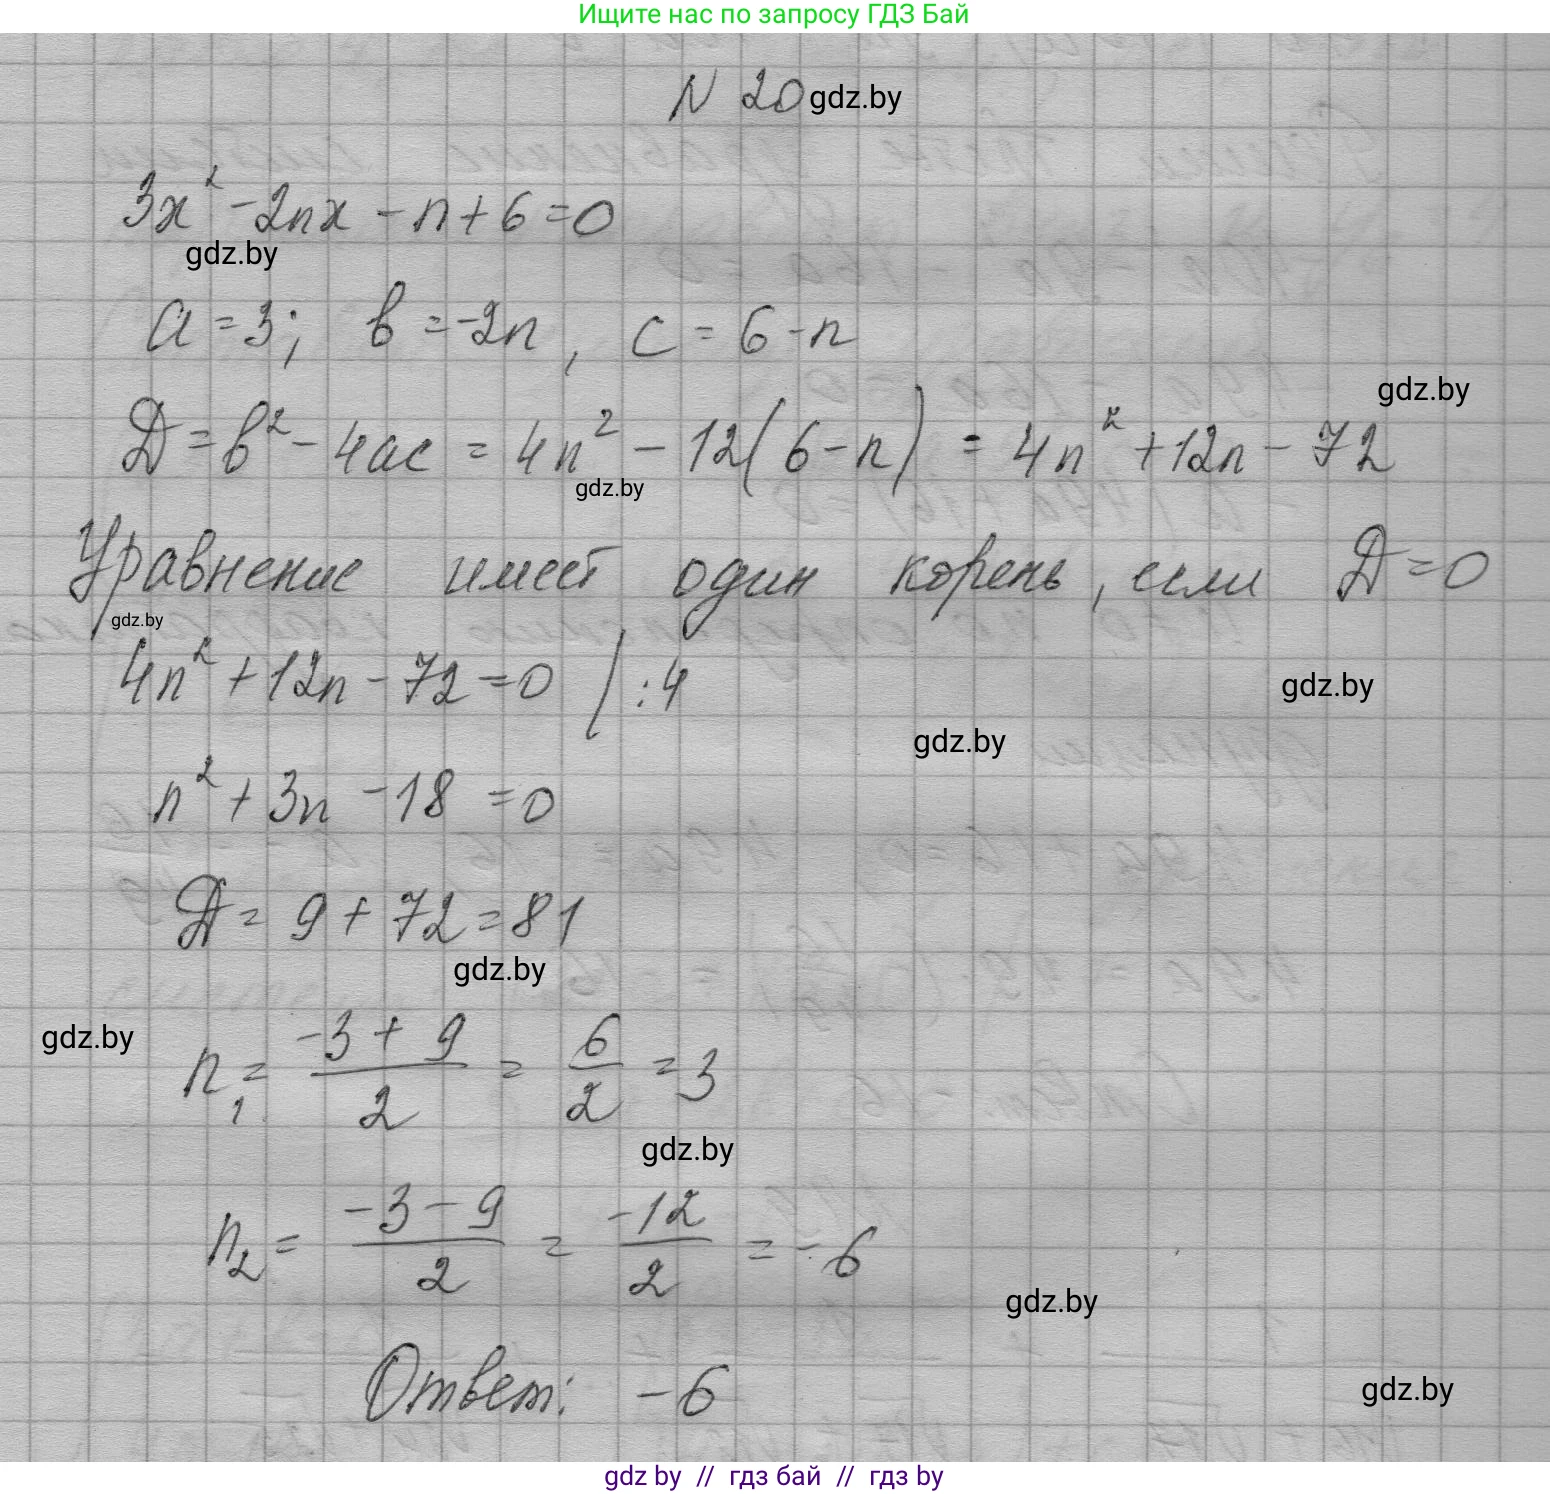 Ищите нас по запросу ГДЗ Бай
N 20 gdz.by
3x² - 2nx - n + 6 = 0
gdz.by
a = 3; в = -2n, c = 6 - n
gdz.by
Д = в² - 4ac = 4n² - 12(6 - n) = 4n² + 12n - 72
gdz.by
Уравнение имеет один корень, если Д = 0
gdz.by
4n² + 12n - 72 = 0 | :4
gdz.by
gdz.by
n² + 3n - 18 = 0
Д = 9 + 72 = 81
gdz.by
gdz.by
n₁ = (-3 + 9)/2 = 6/2 = 3
gdz.by
n₂ = (-3 - 9)/2 = -12/2 = -6
gdz.by
Ответ: -6
gdz.by
gdz by // гдз бай // гдз by